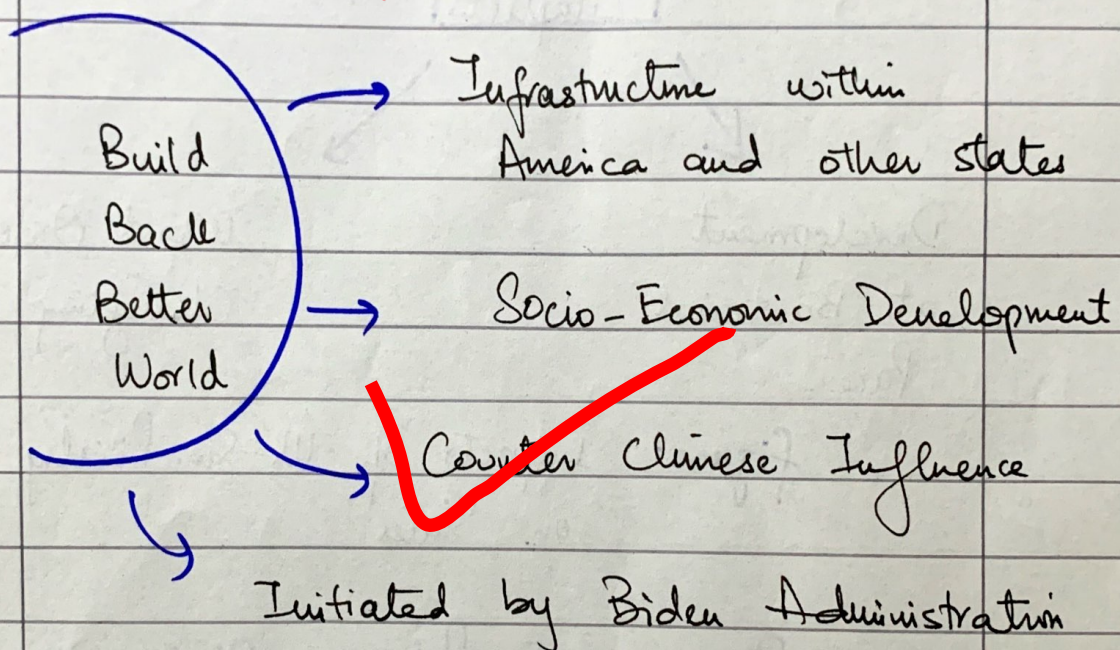 Build
Back
Better
World
Infrastructure within
America and other states
Socio-Economic Development
Counter Chinese Influence
Initiated by Biden Administration